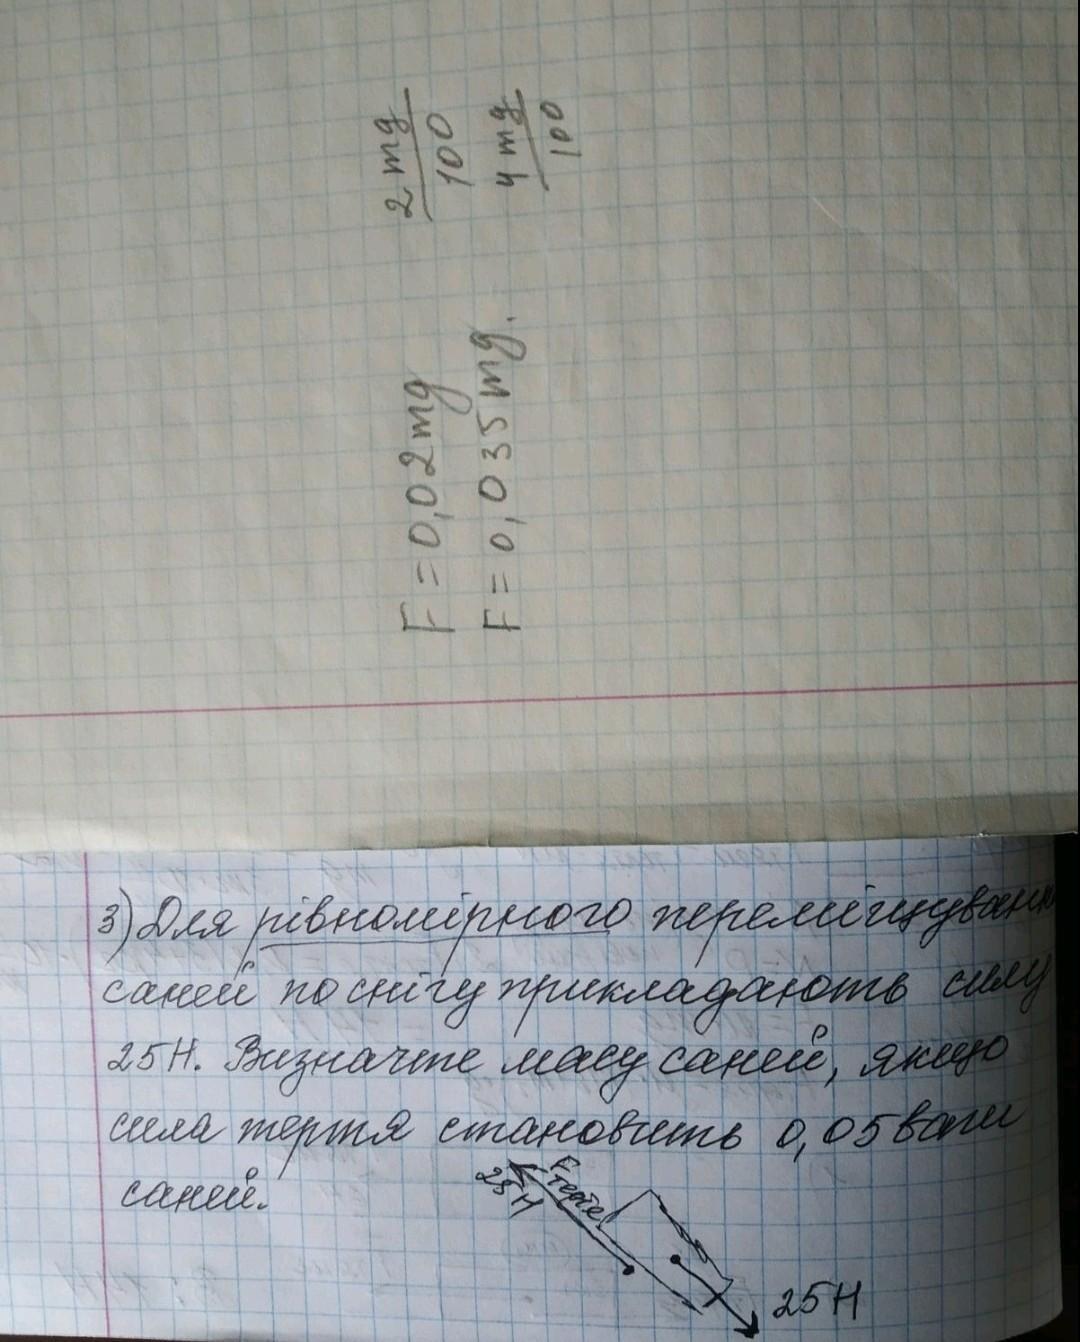 F = 0,02mg
2 mg
100
F = 0,035 mg.
4 mg
100
3) Для рівномірного переміщування
саней по снігу прикладають силу
25Н. Визначте масу саней, якщо
сила тертя становить 0,05 ваги
саней.
Fтертя
25Н
25Н